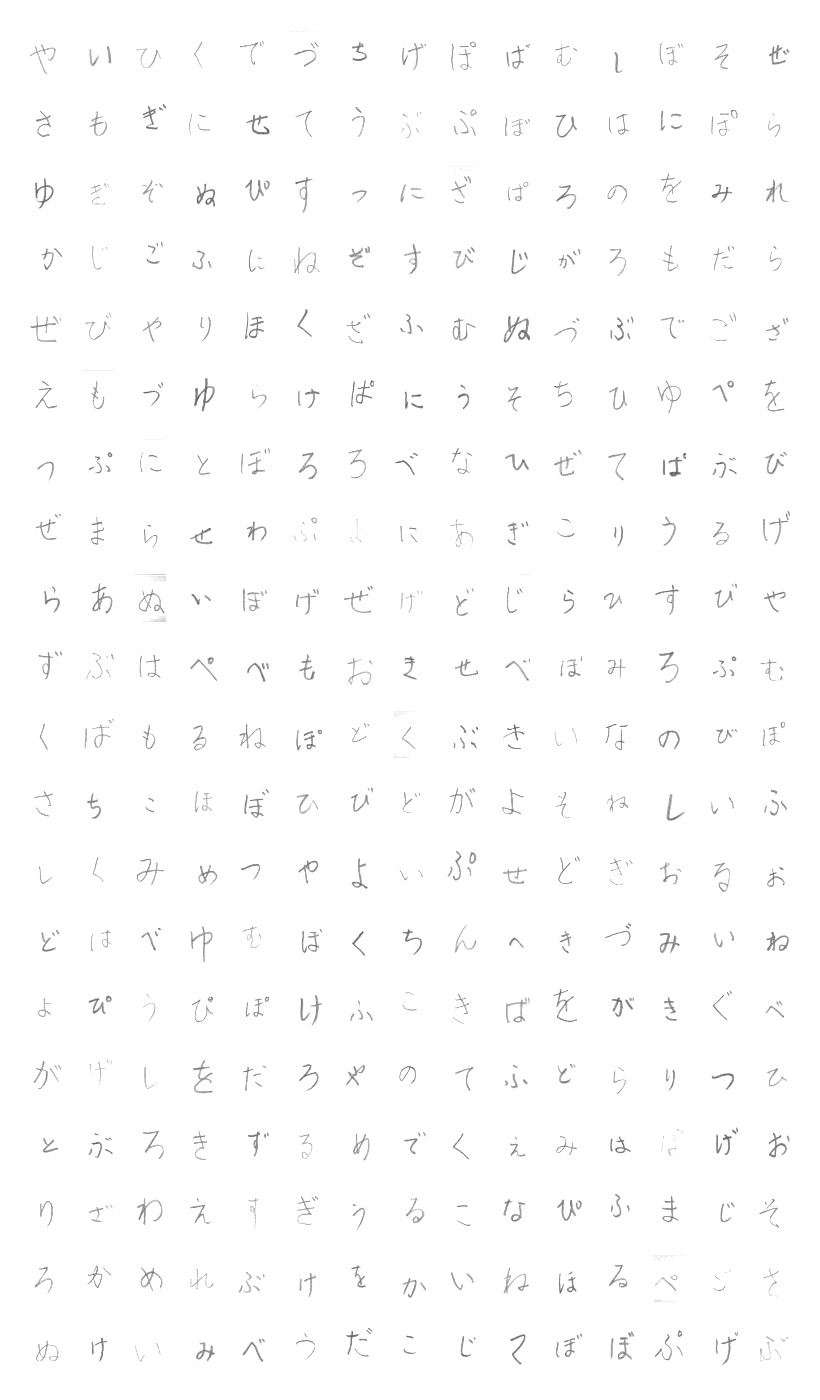 やいひくでづちげぽばむしぼそぜ
さもぎにせてうぶぷぼひはにぽら
ゆぎぞぬぴすつにざぱろのをみれ
かじごふにねぞすびじがろもだら
ぜびやりほくざふむぬづぶでござ
えもづゆらけぱにうそちひゆぺを
つぷにとぼろろべなひぜてぱぶび
ぜまらせわぷよにあぎこりうるげ
らあぬいぼげぜげどじらひすびや
ずぶはぺべもおきせべぼみろぷむ
くばもるねぽどくぶきいなのびぽ
さちこほぼひびどがよそねしいふ
しくみめつやよいぷせどぎおるお
どはべゆむぼくちんへきづみいね
よぴうぴぽけふこきばをがきぐべ
がげしをだろやのてふどらりつひ
とぶろきずるめでくえみはばげお
りざわえすぎうるこなぴふまじそ
ろかめれぶけをかいねほるぺごさ
ぬけいみべうだこじてぼぼぷげぶ